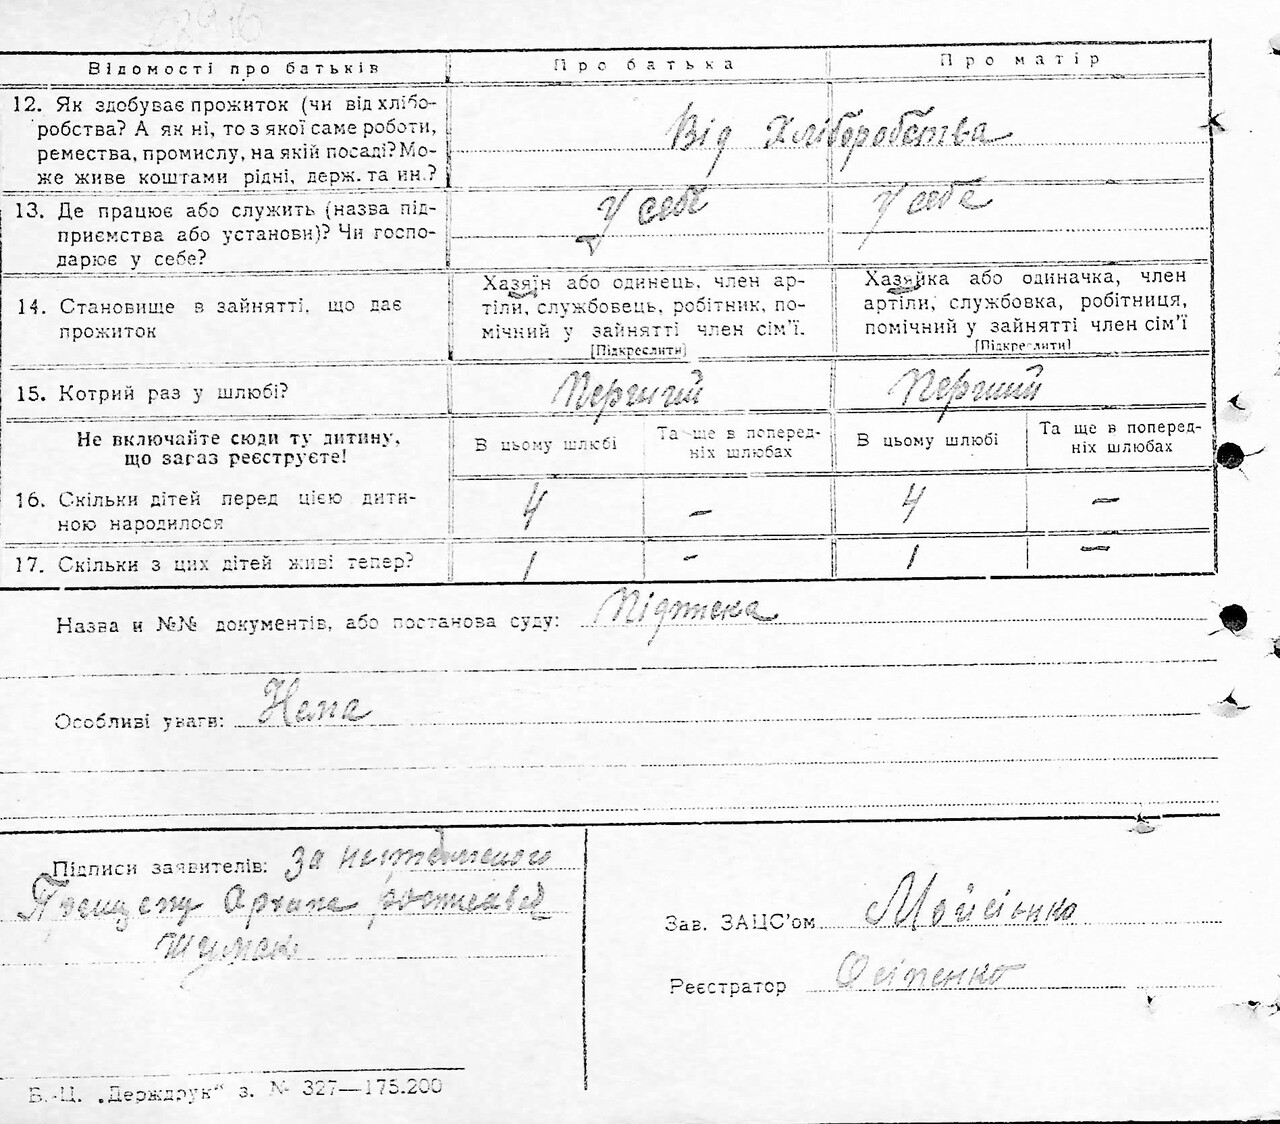 Відомості про батьків
Про батька
Про матір
12. Як здобуває прожиток (чи від хлібо-
робства? А як ні, то з якої саме роботи,
ремества, промислу, на якій посаді? Мо-
же живе коштами рідні, держ. та ин.?
Від хліборобства
13. Де працює або служить (назва під-
приємства або установи)? Чи госпо-
дарює у себе?
У себе
У себе
14. Становище в зайнятті, що дає
прожиток
Хазяїн або одинець, член ар-
тіли, службовець, робітник, по-
мічний у зайнятті член сім'ї.
[Підкреслити]
Хазяйка або одиначка, член
артіли, службовка, робітниця,
помічний у зайнятті член сім'ї
[Підкреслити]
15. Котрий раз у шлюбі?
Перший
Перший
Не включайте сюди ту дитину,
що зараз реєструєте!
В цьому шлюбі
Та ще в поперед-
ніх шлюбах
В цьому шлюбі
Та ще в поперед-
ніх шлюбах
16. Скільки дітей перед цією дити-
ною народилося
4
–
4
–
17. Скільки з цих дітей живі тепер?
1
–
1
–
Назва и №№ документів, або постанова суду: Підписка
Особливі уваги: Нема
Підписи заявителів: за
Архипа
Зав. ЗАЦС'ом Мойсієнко
Реєстратор Осіпенко
Б.-Ц. „Держдрук“ з. № 327—175.200